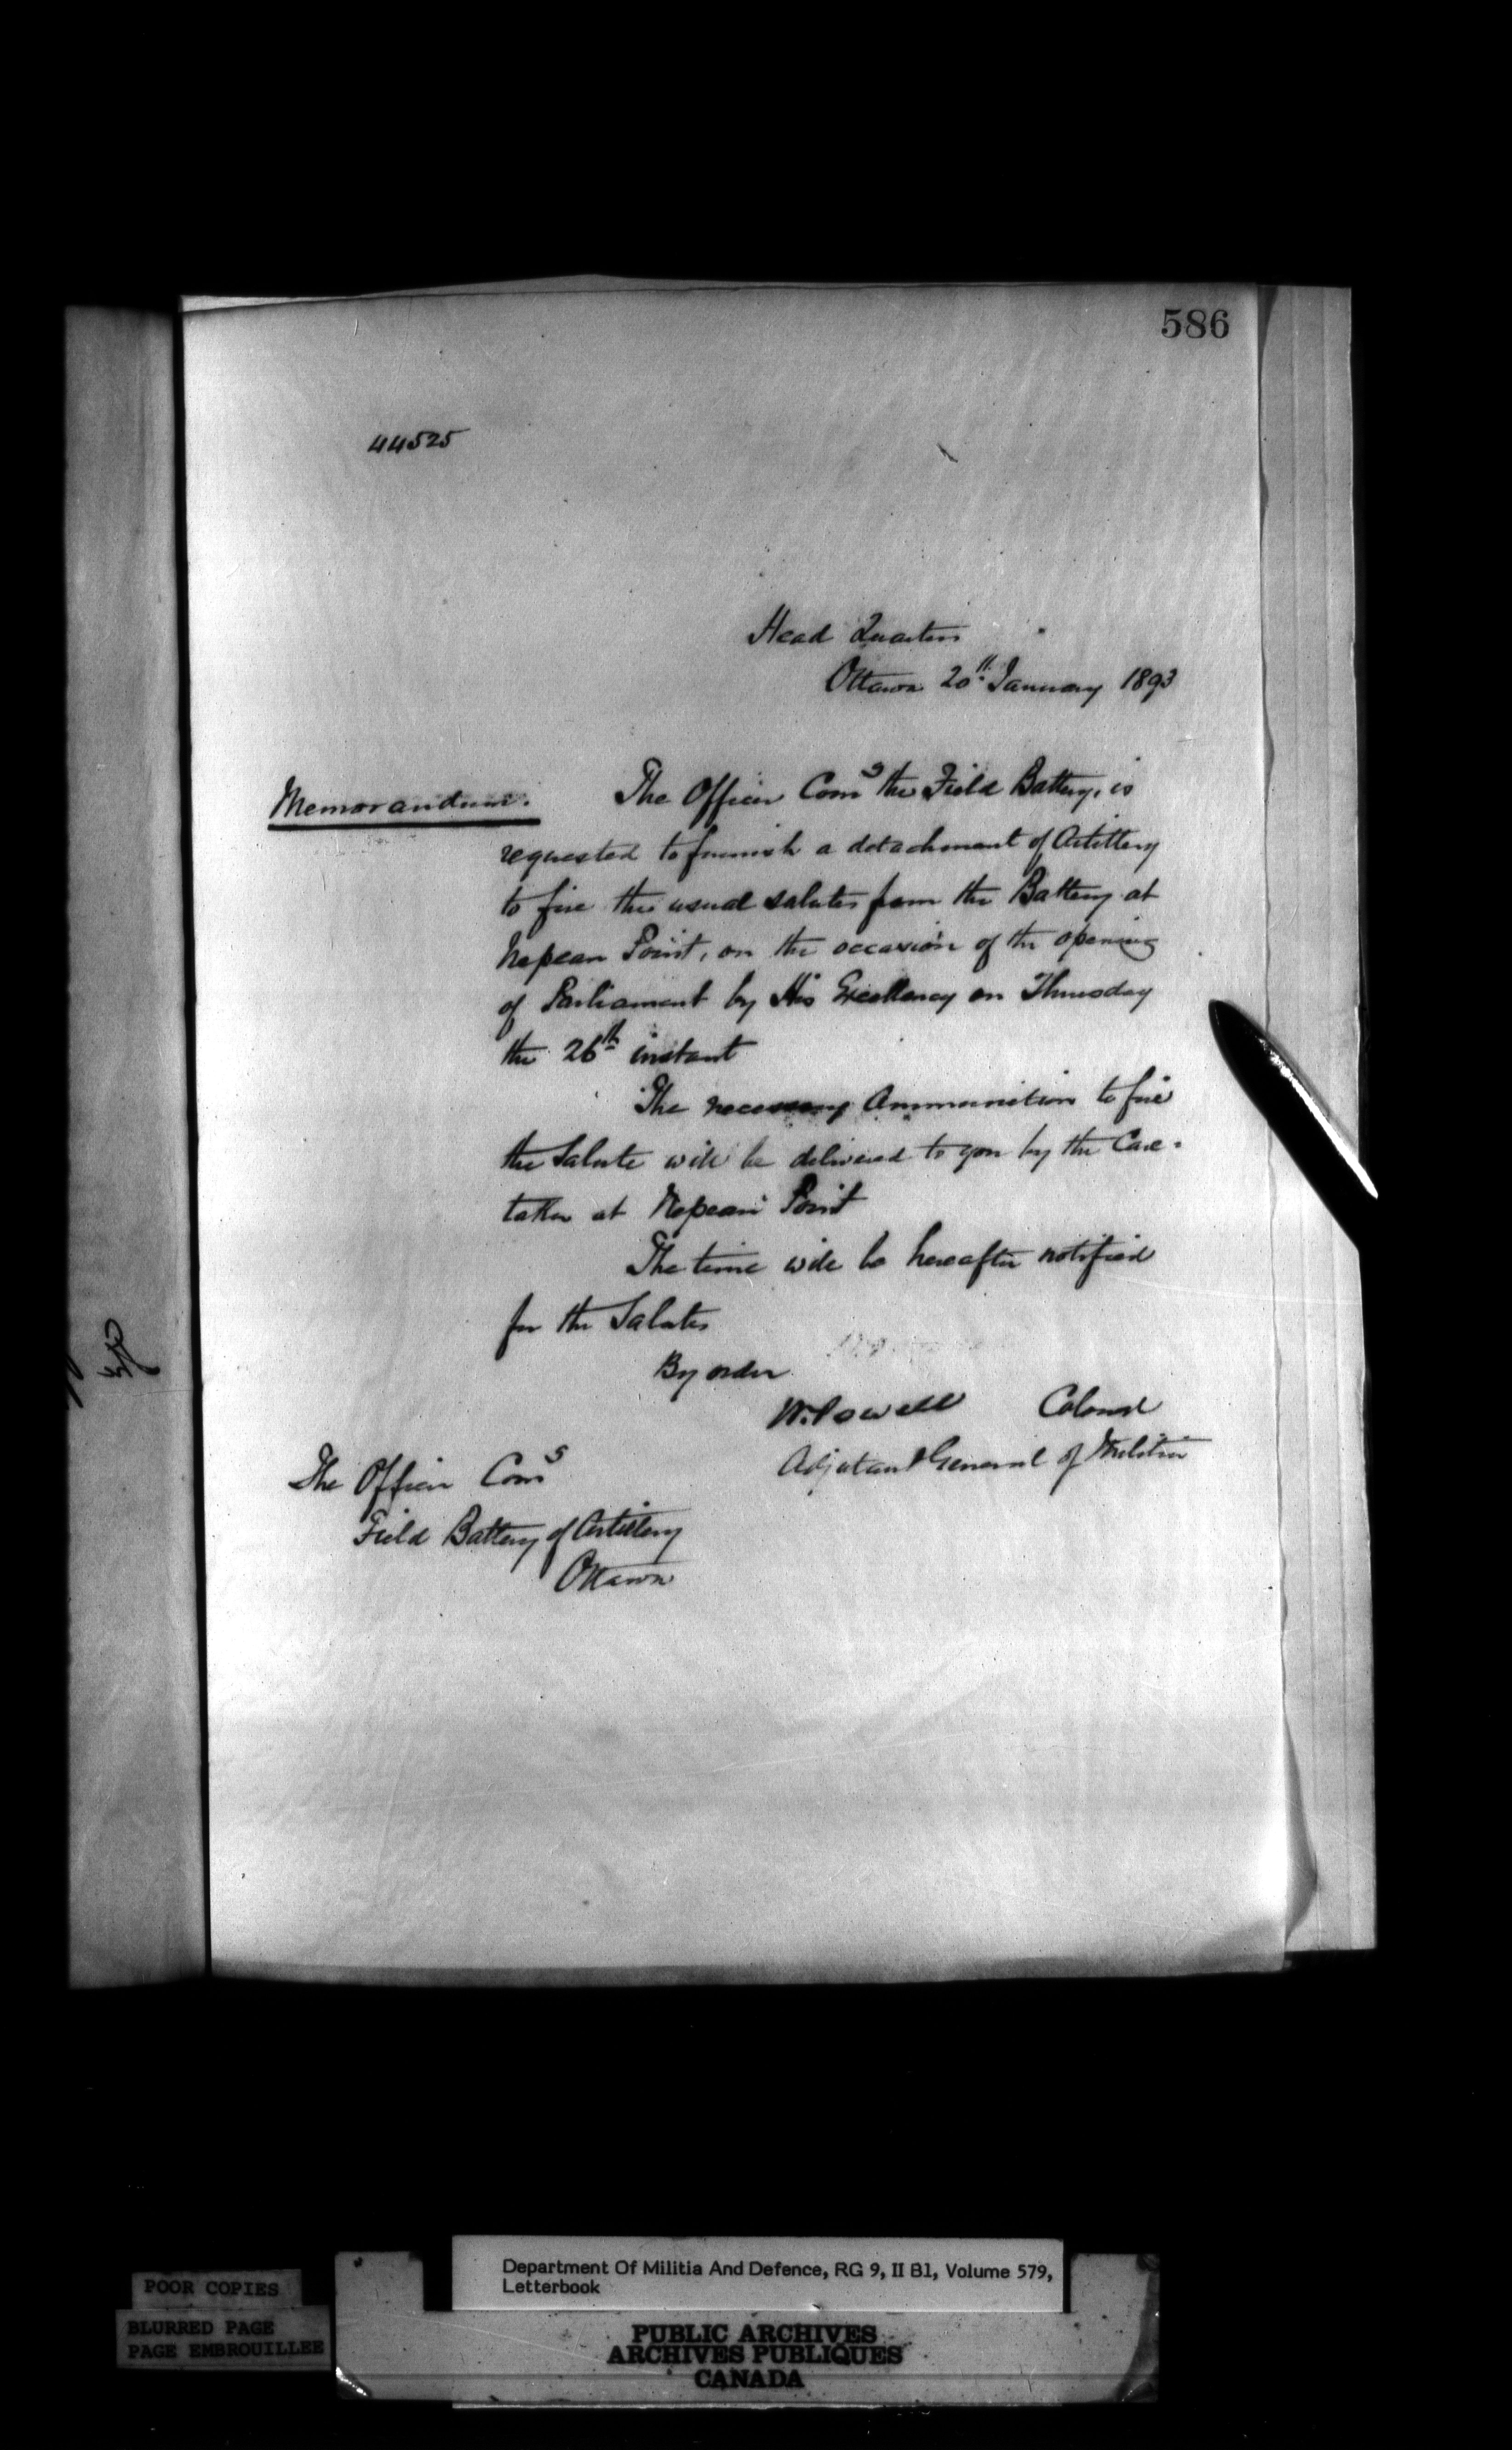 586
44525
Head Quarters
Ottawa 20th January 1893
Memorandum. The Officer Comg the Field Battery, is
requested to furnish a detachment of Artillery
to fire the usual salutes from the Battery at
Nepean Point, on the occasion of the opening
of Parliament by His Excellency on Thursday
the 26th instant
The necessary Ammunition to fire
the Salute will be delivered to you by the Care-
taker at Nepean Point
The time will be hereafter notified
for the Salutes
By order
W. Powell Colonel
Adjutant General of Militia
The Officer Comg
Field Battery of Artillery
Ottawa
Department Of Militia And Defence, RG 9, II B1, Volume 579,
Letterbook
POOR COPIES
BLURRED PAGE
PAGE EMBROUILLEE
PUBLIC ARCHIVES
ARCHIVES PUBLIQUES
CANADA